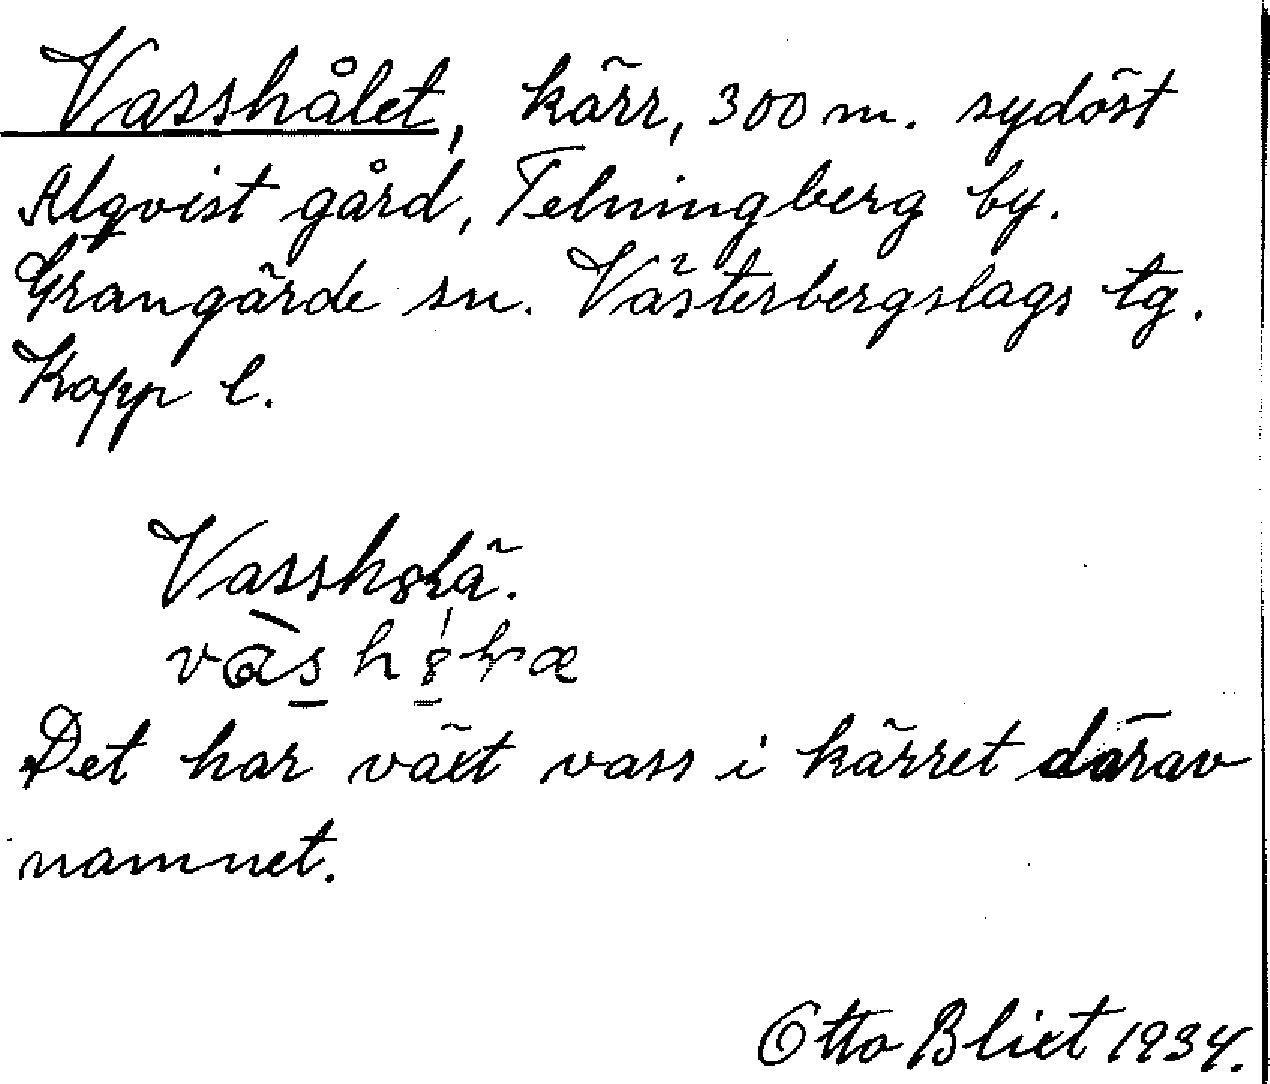 Vasshålet, kärr, 300 m. sydöst
Alqvist gård, Telningberg by.
Grangärde sn. Västerbergslags tg.
Kopp l.
Det har växt vass i kärret därav
namnet.
Otto Blixt 1934.